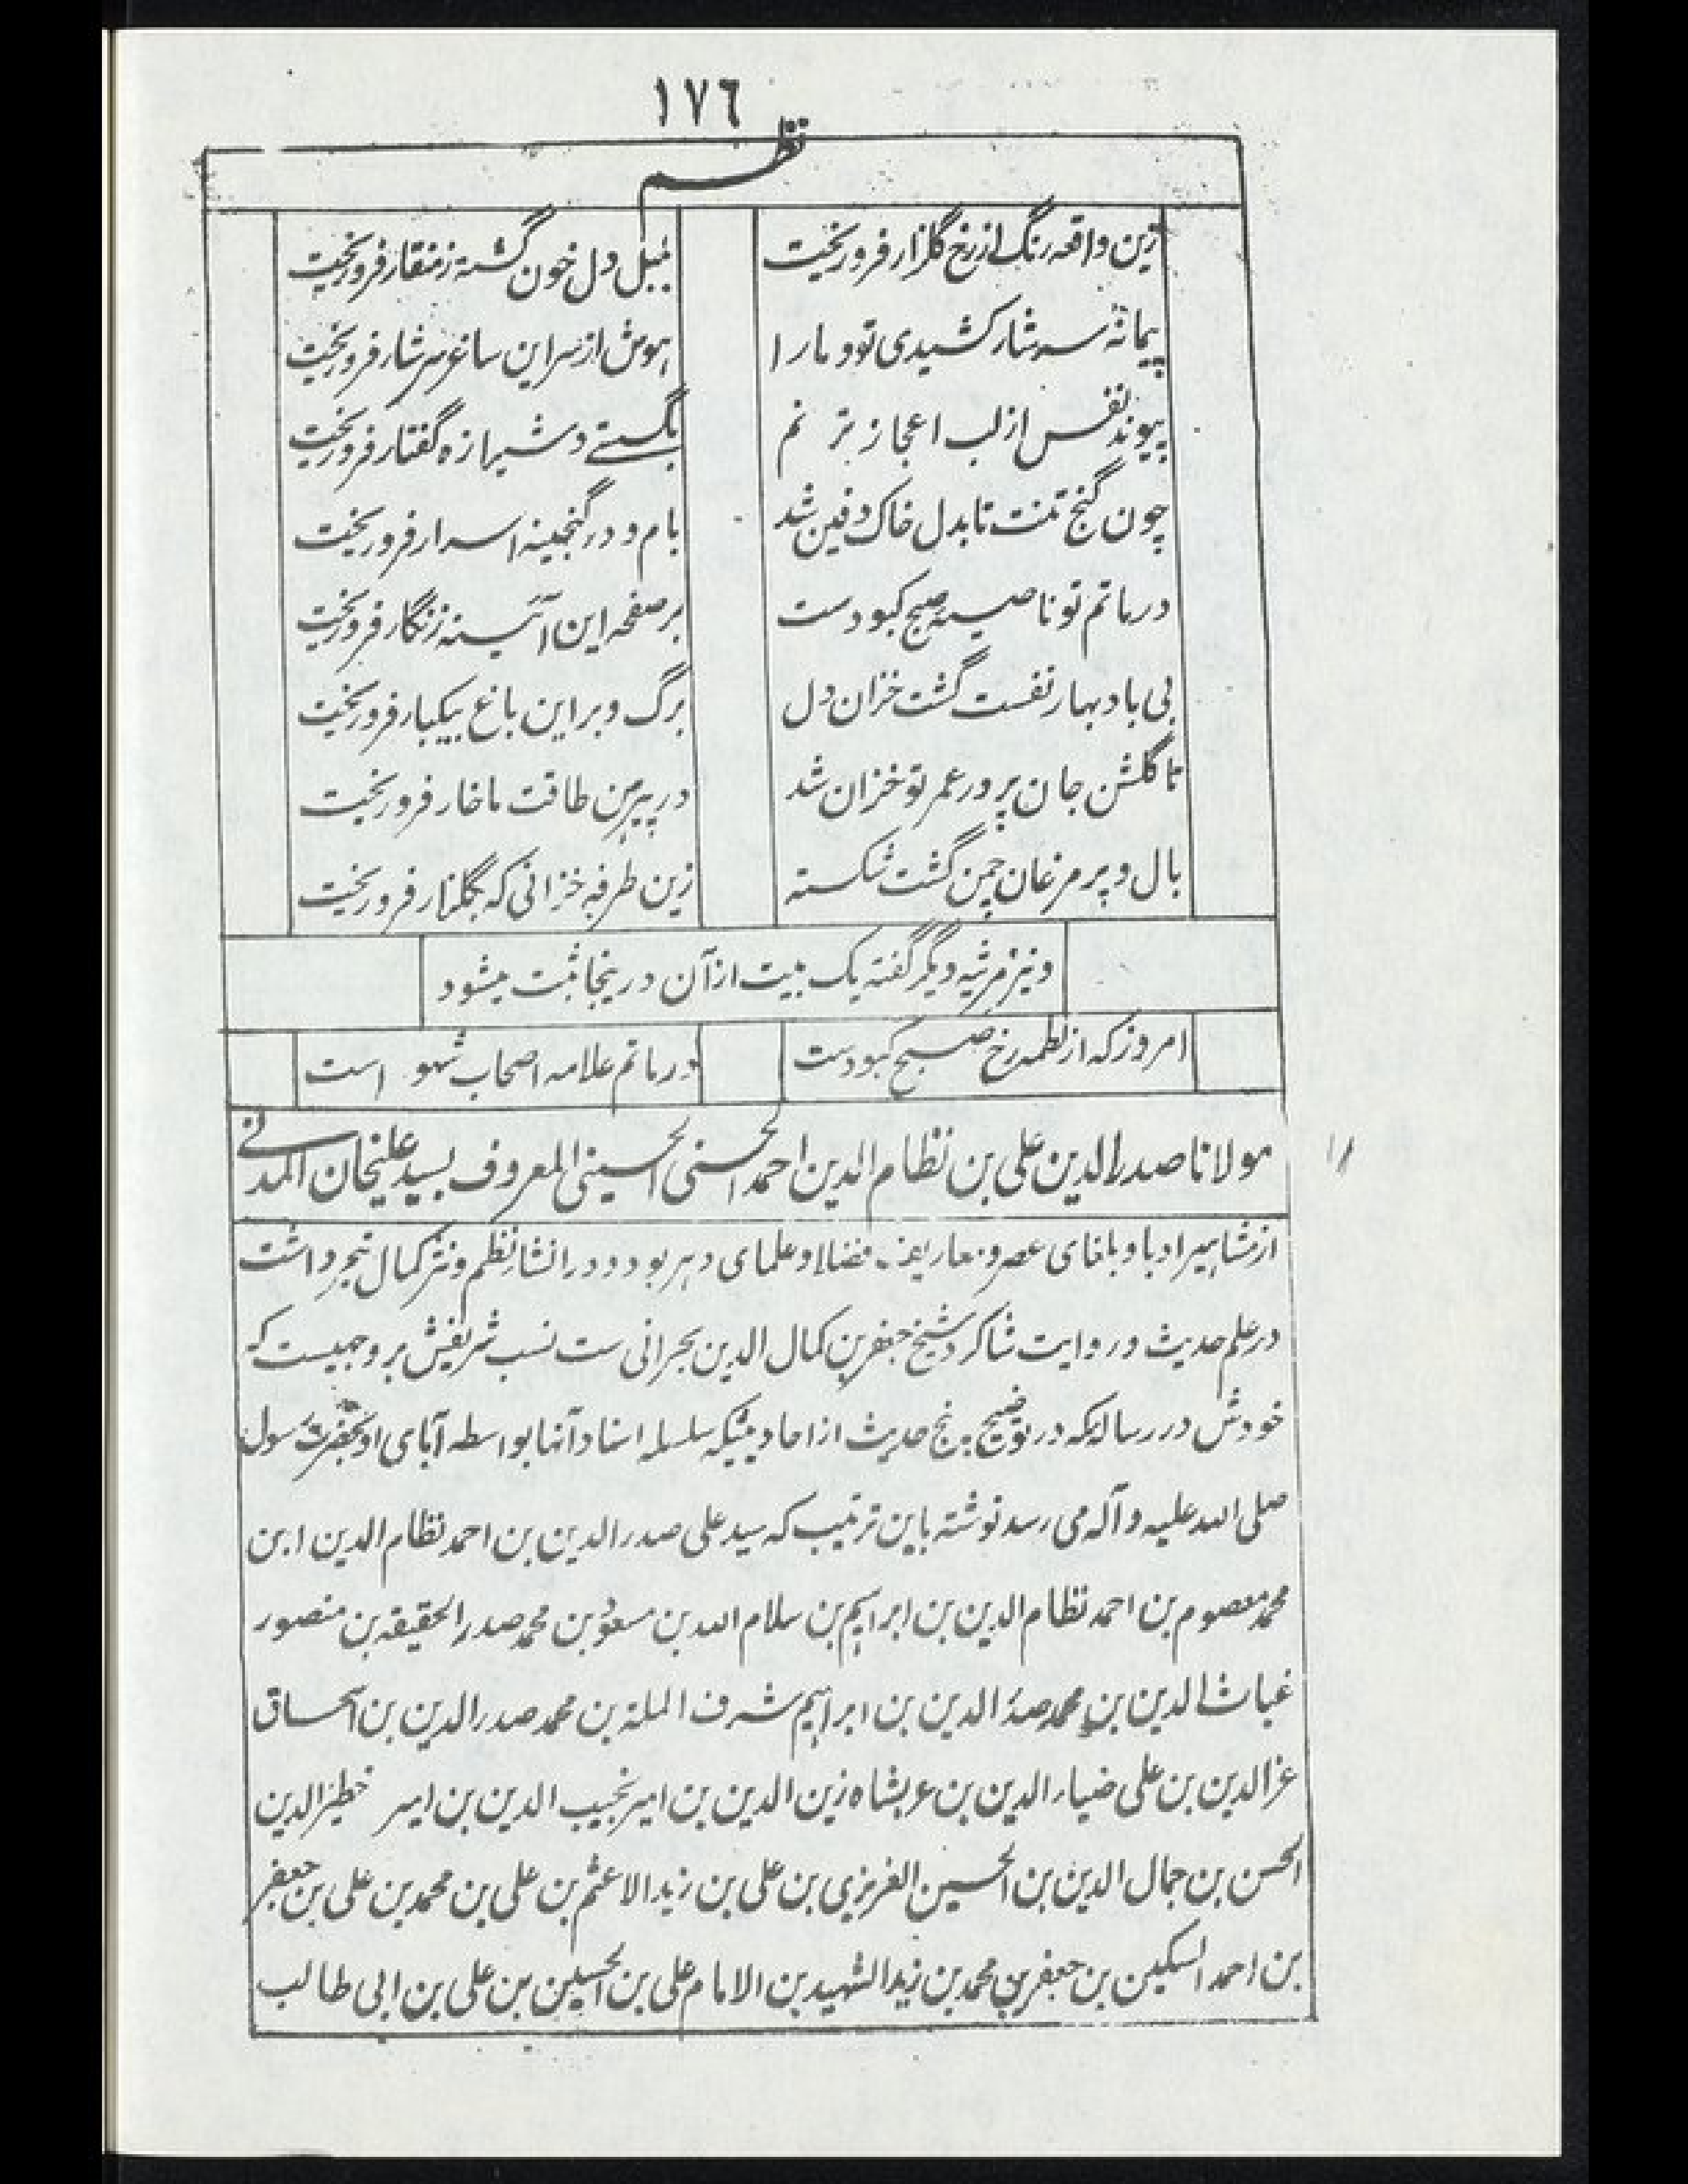 ١٧٦
نظم
زین واقعه رنگ از رخ گلزار فرو ریخت بلبل دل خون گشته ز منقار فرو ریخت
پیمانهٔ سرشار کشیدی تو و مارا هوش از سر این ساغر سرشار فرو ریخت
پیوند نفس از لب اعجاز ترنم بگسستی و شیرازه گفتار فرو ریخت
چون گنج تنت تا بدل خاک دفین شد بام و در گنجینه اسرار فرو ریخت
در ماتم تو ناصیه صبح کبودست بر صفحه این آئینه زنگار فرو ریخت
بی باد بهار نفست گشت خزان دل برگ و بر این باغ بیکبار فرو ریخت
تا گلشن جان پرور عمر تو خزان شد در پیرهن طاقت ما خار فرو ریخت
بال و پر مرغان چمن گشت شکسته زین طرفه خزانی که بگلزار فرو ریخت
و نیز مرثیه دیگر گفته یک بیت از آن درینجا ثبت میشود
امروز که از لطمه رخ صبح کبودست در ماتم علامه اصحاب شهو است
مولانا صدر الدین علی بن نظام الدین احمد الحسنی الحسینی المعروف بسید علیخان المدنی
از مشاهیر ادبا و بلغای عصر و معاریف فضلا و علمای دهر بود و در انشار نظم و نثر کمال تبحر داشت
در علم حدیث و روایت شاکرد شیخ جعفر بن کمال الدین بحرانی ست نسب شریفش بر وجهیست که
خودش در رسالهٔکه در توضیح پنج حدیث از احادیثیکه سلسله اسناد آنها بواسطه آبای او بحضرت رسول
صلی الله علیه و آله می رسد نوشته باین ترتیب که سید علی صدر الدین بن احمد نظام الدین ابن
محمد معصوم بن احمد نظام الدین بن ابراهیم بن سلام الله بن مسعود بن محمد صدر الحقیقه بن منصور
غیاث الدین بن محمد صدر الدین بن ابراهیم شرف الملة بن محمد صدر الدین بن اسحاق
عز الدین بن علی ضیار الدین بن عربشاه زین الدین بن امیر نجیب الدین بن امیر خطیر الدین
الحسن بن جمال الدین بن الحسین العزیزی بن علی بن زید الاعثم بن علی بن محمد بن علی بن جعفر
بن احمد السکین بن جعفر بن محمد بن زید الشهید بن الامام علی بن الحسین بن علی بن ابی طالب